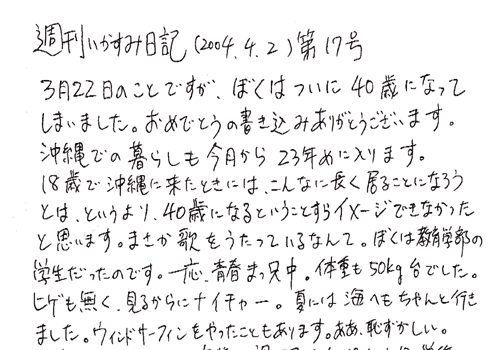 週刊いかすみ日記(2004.4.2)第17号
3月22日のことですが、ぼくはついに40歳になって
しまいました。おめでとうの書き込みありがとうございます。
沖縄での暮らしも今月から23年めに入ります。
18歳で沖縄に来たときには、こんなに長く居ることになろう
とは、というより、40歳になるということすらイメージできなかった
と思います。まさか歌をうたっているなんて。ぼくは教育学部の
学生だったのです。一応、青春まっ只中。体重も50kg台でした。
ヒゲも無く、見るからにナイチャー。夏には海へもちゃんと行き
ました。ウィンドサーフィンをやったこともあります。ああ、恥ずかしい。